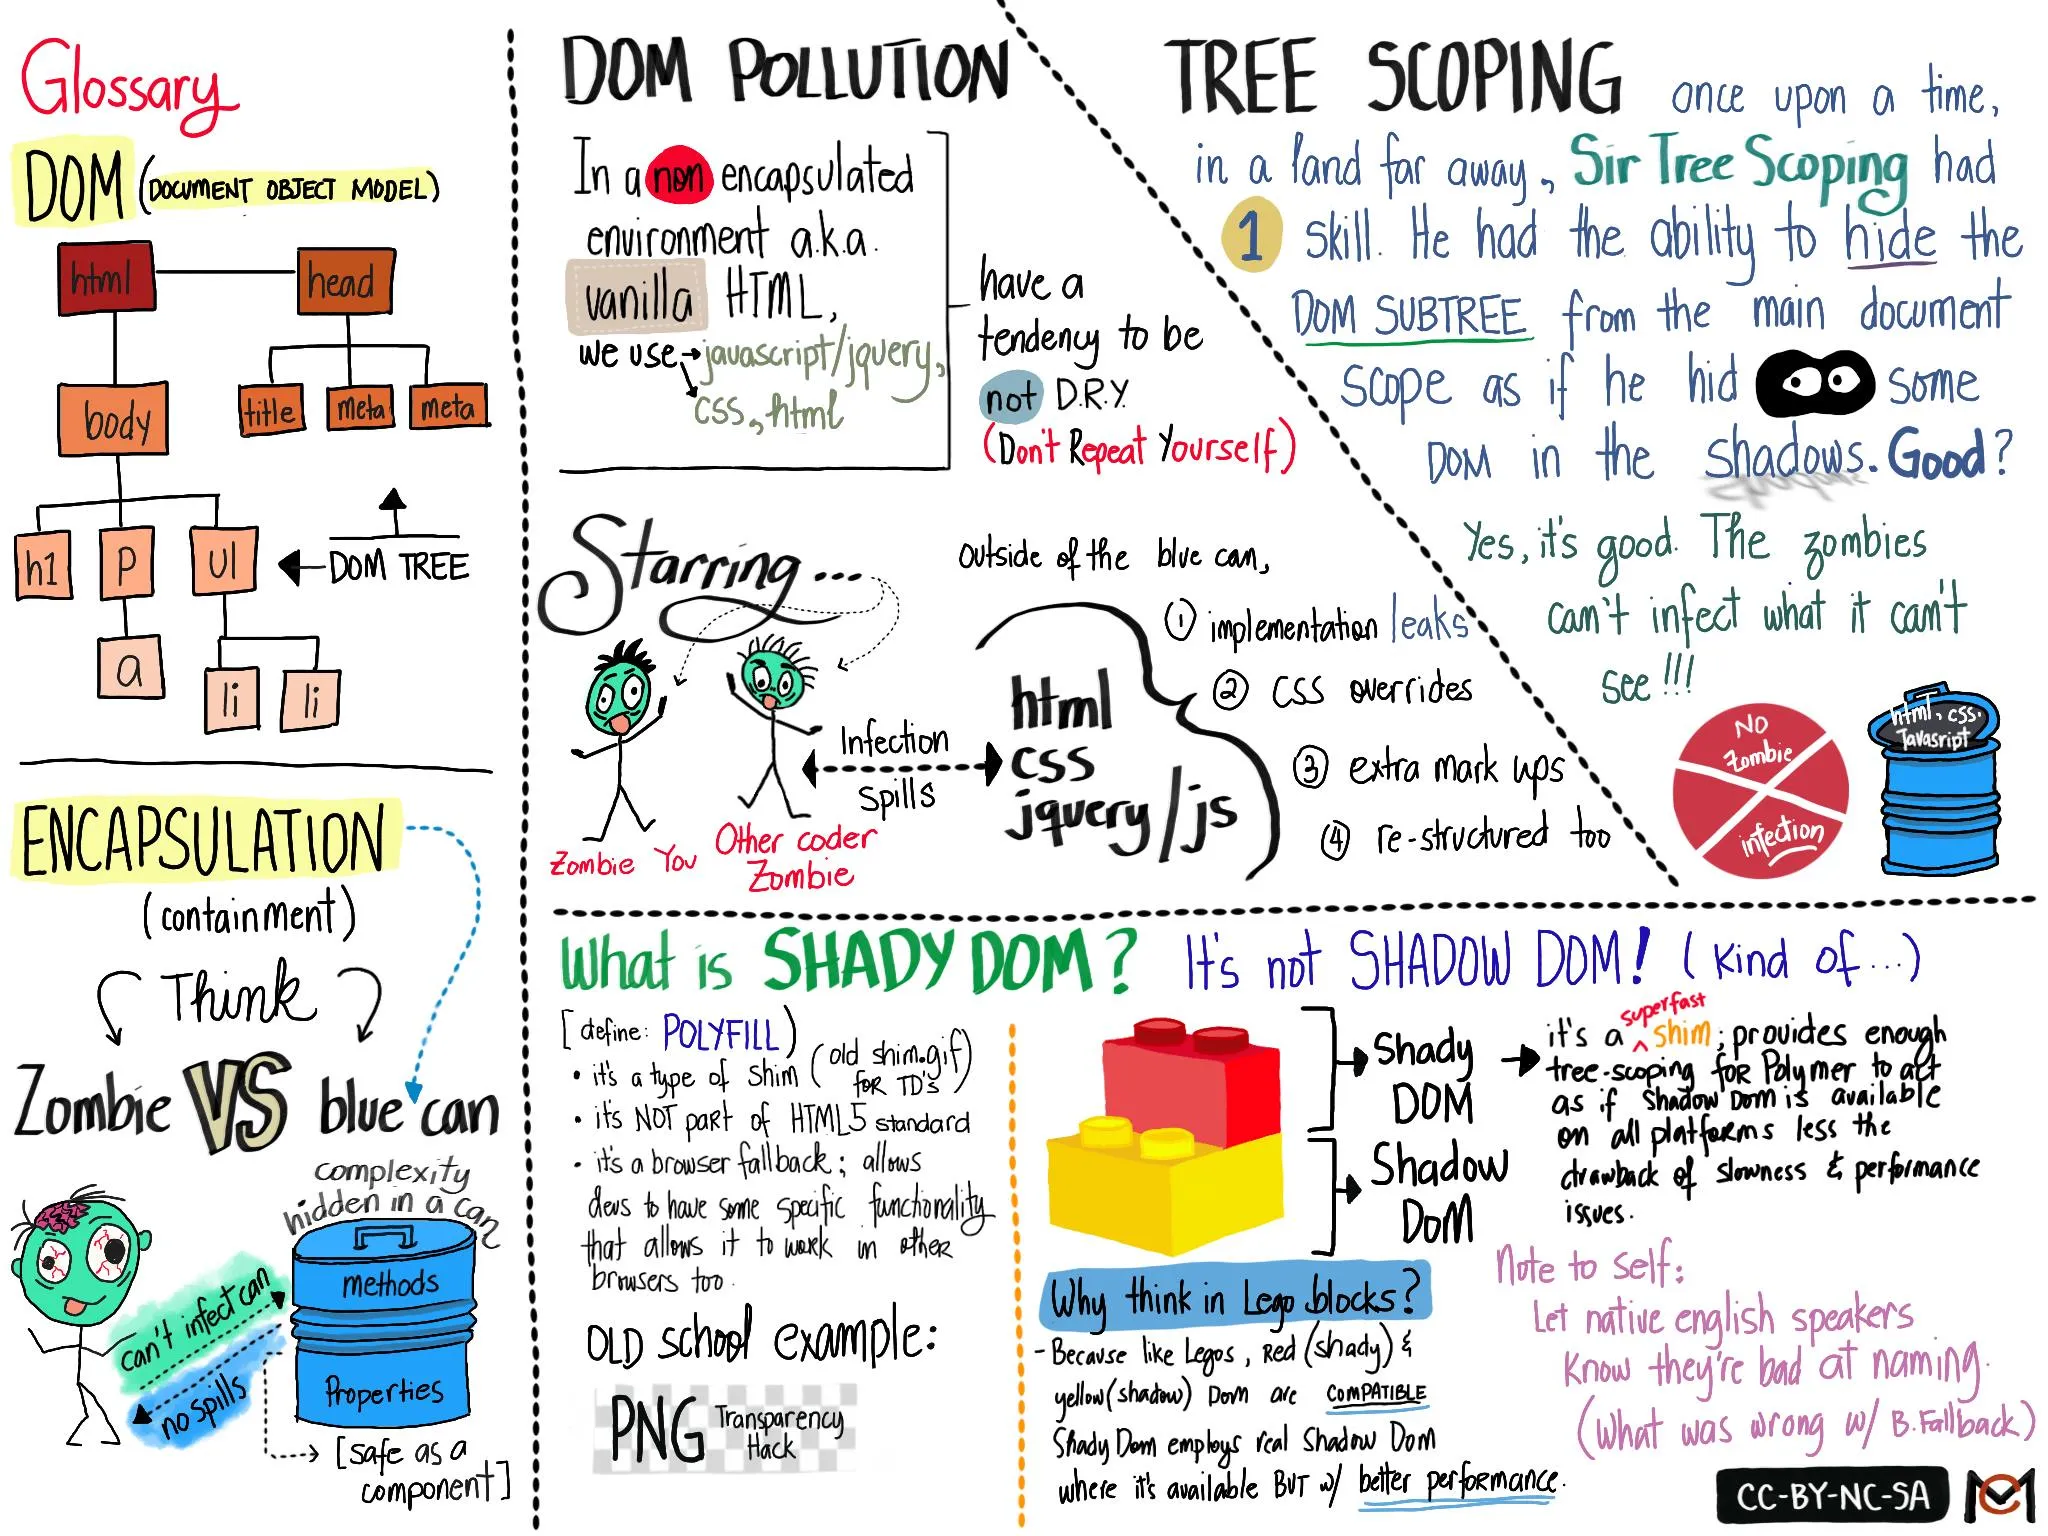 Glossary
DOM (DOCUMENT OBJECT MODEL)
html
head
body
title
meta
meta
h1
p
ul
DOM TREE
a
li
li
ENCAPSULATION
(containment)
Think
Zombie VS blue can
complexity
hidden in a can
methods
can't infect can
no spills
Properties
[safe as a
component]
DOM POLLUTION
In a non encapsulated
environment a.k.a.
vanilla HTML,
we use javascript/jquery,
css, html
have a
tendency to be
not D.R.Y.
(Don't Repeat Yourself)
Starring...
Zombie You
Other coder
Zombie
Infection
spills
html
css
jquery/js
outside of the blue can,
1 implementation leaks
2 CSS overrides
3 extra mark ups
4 re-structured too
TREE SCOPING once upon a time,
in a land far away, Sir Tree Scoping had
1 skill. He had the ability to hide the
DOM SUBTREE from the main document
scope as if he hid some
DOM in the shadows. Good?
Yes, it's good. The zombies
can't infect what it can't
see!!!
NO
Zombie
infection
html, css.
Javasript
What is SHADY DOM? It's not SHADOW DOM! (Kind of...)
[define: POLYFILL)
• it's a type of shim (old shim.gif)
for TD's
• it's NOT part of HTML5 standard
• it's a browser fallback; allows
devs to have some specific functionality
that allows it to work in other
browsers too.
OLD school example:
PNG Transparency
Hack
Shady
DOM
Shadow
DOM
it's a superfast shim; provides enough
tree-scoping for Polymer to act
as if Shadow Dom is available
on all platforms less the
drawback of slowness & performance
issues.
Why think in Lego blocks?
- Because like Legos, Red (shady) &
yellow (shadow) DOM are COMPATIBLE
Shady Dom employs real Shadow Dom
where it's available BUT w/ better performance.
Note to self:
Let native english speakers
know they're bad at naming.
(What was wrong w/ B.Fallback)
CC-BY-NC-SA